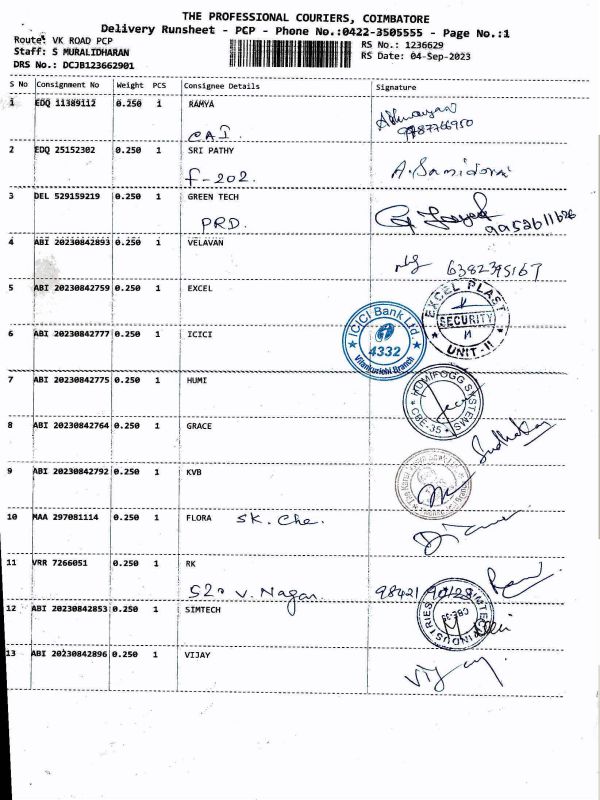 THE PROFESSIONAL COURIERS, COIMBATORE
Delivery Runsheet - PCP - Phone No.:0422-3505555 - Page No.:1
Route: VK ROAD PCP
RS No.: 1236629
Staff: S MURALIDHARAN
RS Date: 04-Sep-2023
DRS No.: DCJB123662901
S No Consignment No Weight PCS Consignee Details Signature
1 EDQ 11389112 0.250 1 RAMYA
9787766950
CAI.
2 EDQ 25152302 0.250 1 SRI PATHY
f-202.
3 DEL 529159219 0.250 1 GREEN TECH
PRD. 9952611626
4 ABI 20230842893 0.250 1 VELAVAN
6382395167
5 ABI 20230842759 0.250 1 EXCEL
EXCEL PLAST
SECURITY
UNIT-II
ICICI Bank Ltd.
4332
Vilankurichi Branch
6 ABI 20230842777 0.250 1 ICICI
7 ABI 20230842775 0.250 1 HUMI
HUMIFOGG SYSTEMS
CBE-35
8 ABI 20230842764 0.250 1 GRACE
Sudhakar
9 ABI 20230842792 0.250 1 KVB
10 MAA 297081114 0.250 1 FLORA SK. Che.
11 VRR 7266051 0.250 1 RK
520 V. Nagar. 98421 90128
12 ABI 20230842853 0.250 1 SIMTECH
SIMTECH INDUSTRIES
CBE-35
13 ABI 20230842896 0.250 1 VIJAY
Vijay